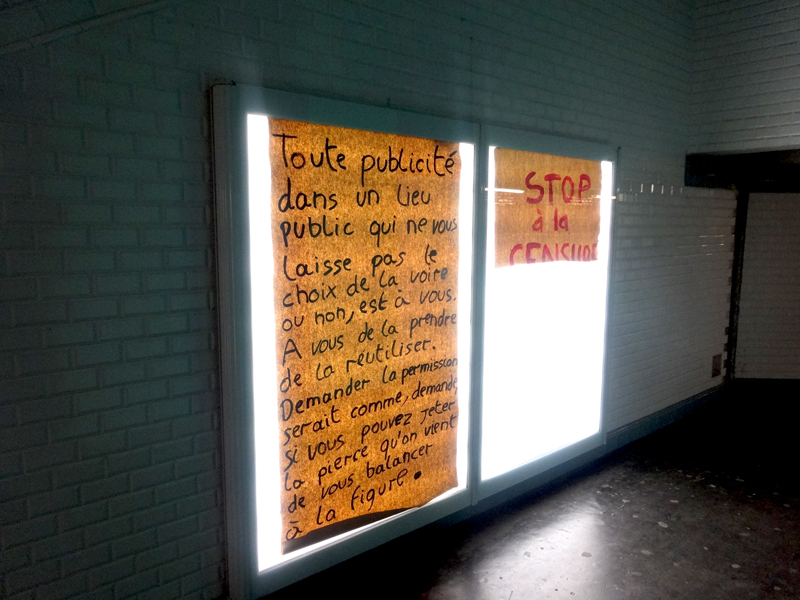 Toute publicité
dans un lieu
public qui ne vous
laisse pas le
choix de la voire
ou non, est à vous.
A vous de la prendre
de la réutiliser.
Demander la permission
serait comme, demander
si vous pouvez jeter
la pierre qu'on vient
de vous balancer
à la figure.
STOP
à la
CENSURE